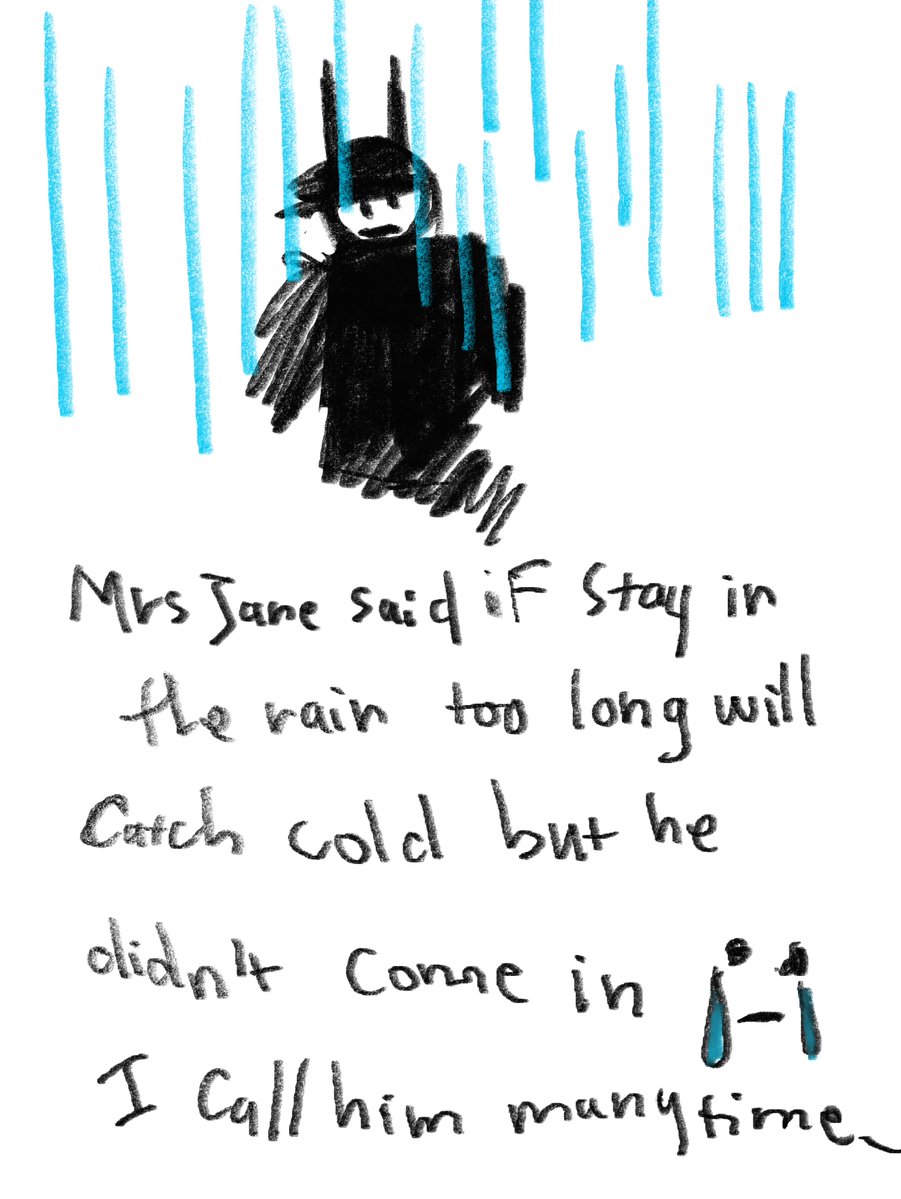 Mrs Jane said if stay in
the rain too long will
Catch cold but he
didn't come in
I Call him many time